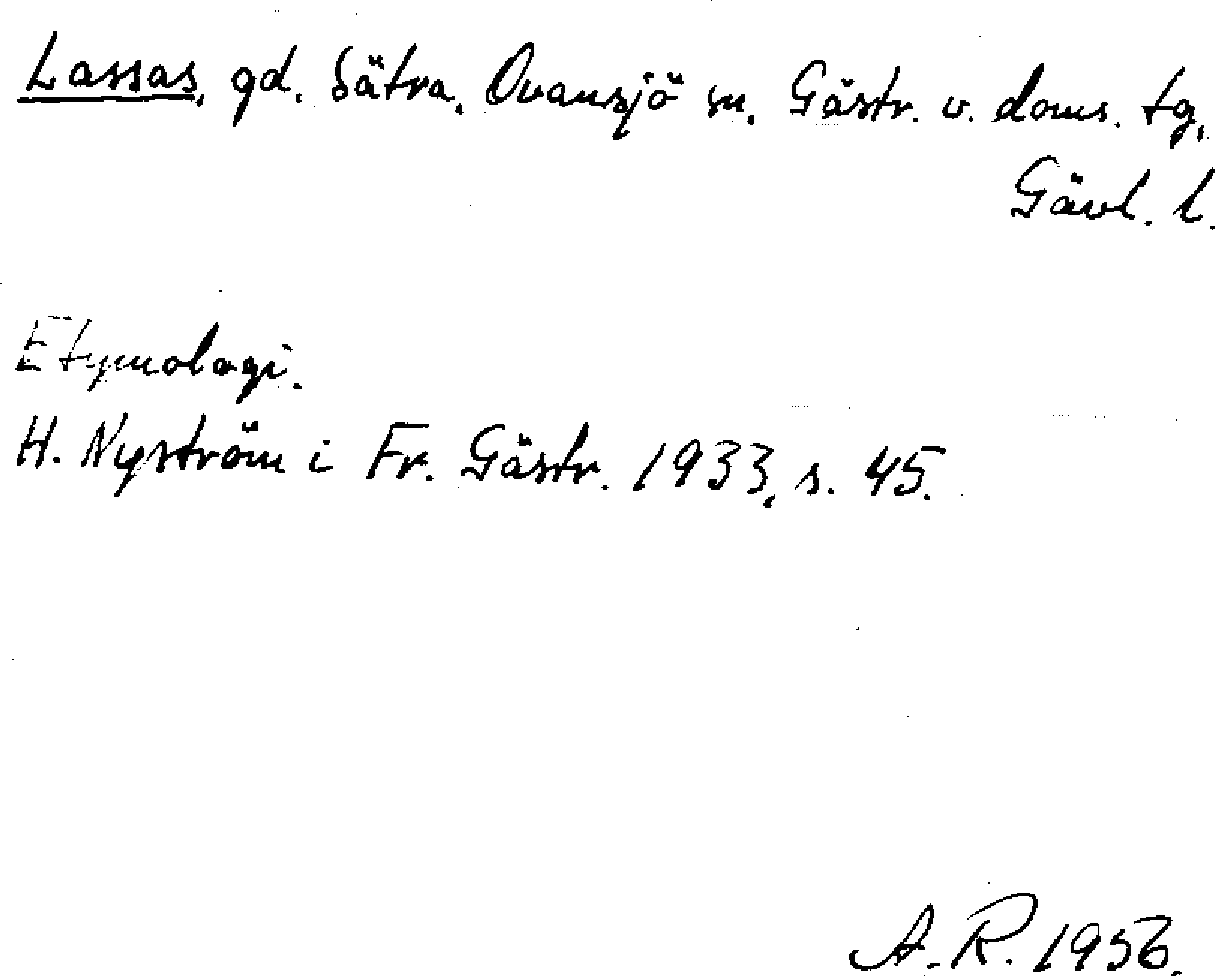 Lassas, gd. Sätra, Ovansjö sn. Gästr. v. doms. tg,
Gävl. l.
Etymologi.
H. Nyström i Fr. Gästr. 1933, s. 45.
A. R. 1956.